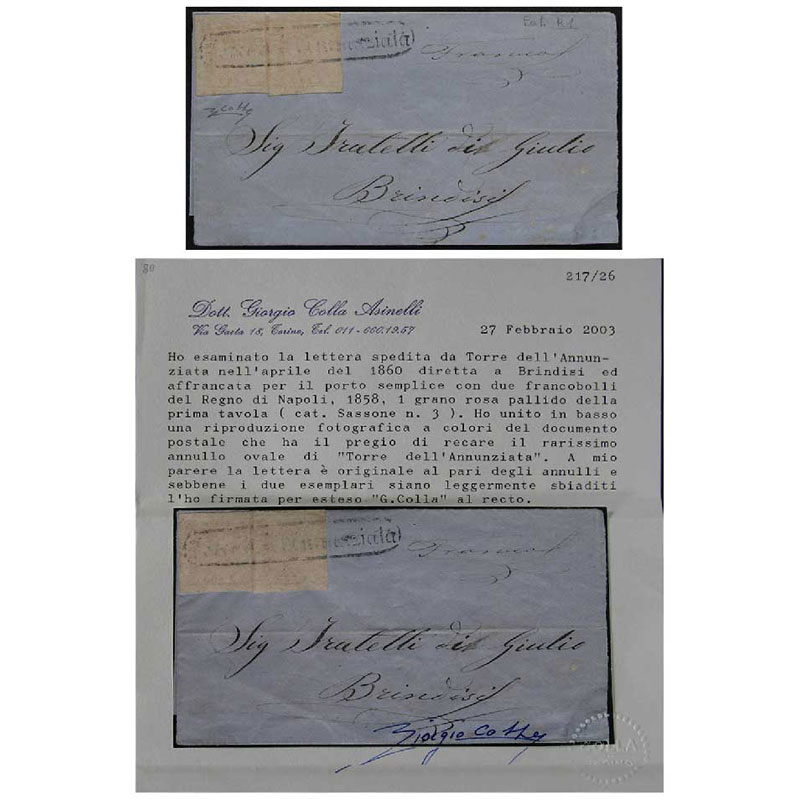 Fab. R1
Torre dell'Annunziata
Franca
GColla
Sig Fratelli di Giulio
Brindisi
80
217/26
Dott. Giorgio Colla Asinelli
Via Gaeta 18, Torino, Tel. 011 - 600.19.57
27 Febbraio 2003
Ho esaminato la lettera spedita da Torre dell'Annun-
ziata nell'aprile del 1860 diretta a Brindisi ed
affrancata per il porto semplice con due francobolli
del Regno di Napoli, 1858, 1 grano rosa pallido della
prima tavola ( cat. Sassone n. 3 ). Ho unito in basso
una riproduzione fotografica a colori del documento
postale che ha il pregio di recare il rarissimo
annullo ovale di "Torre dell'Annunziata". A mio
parere la lettera è originale al pari degli annulli e
sebbene i due esemplari siano leggermente sbiaditi
l'ho firmata per esteso "G.Colla" al recto.
Torre dell'Annunziata
Franca
Sig Fratelli di Giulio
Brindisi
Giorgio Colla
COLLA